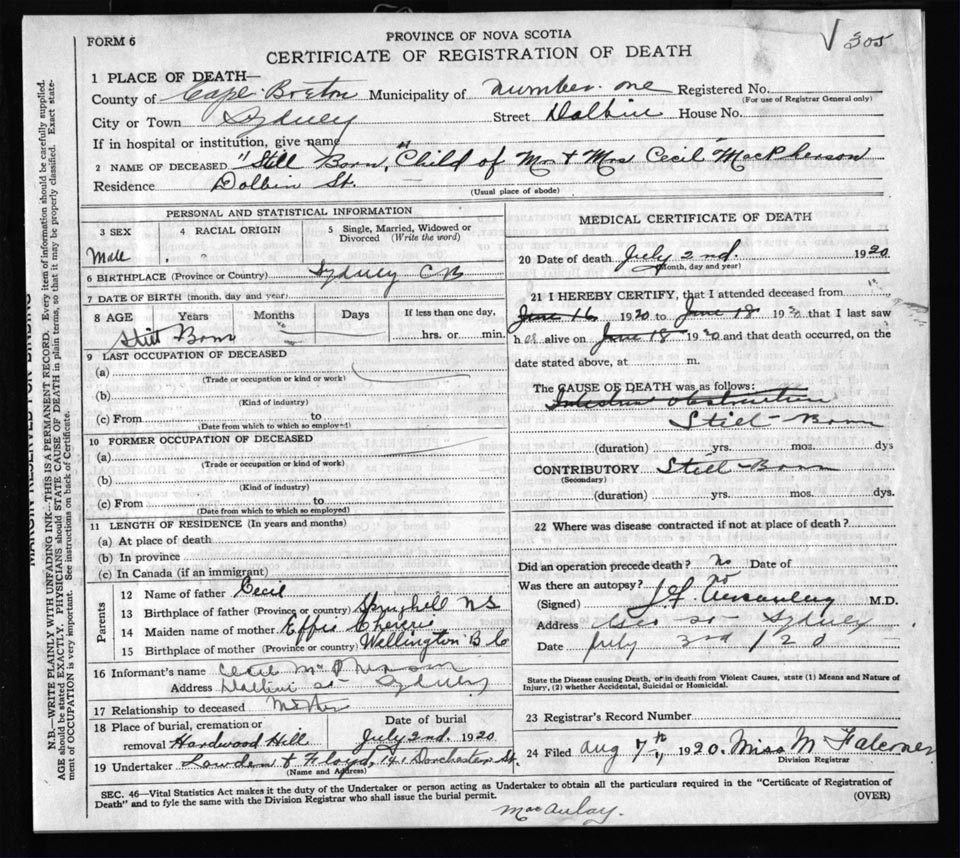 FORM 6
PROVINCE OF NOVA SCOTIA
CERTIFICATE OF REGISTRATION OF DEATH
√ 305
1 PLACE OF DEATH—
County of Cape Breton Municipality of number one Registered No.
(For use of Registrar General only)
City or Town Sydney Street Dolbin House No.
If in hospital or institution, give name
2 NAME OF DECEASED "Still Born," Child of Mr & Mrs Cecil MacPherson
Residence Dolbin St.
(Usual place of abode)
PERSONAL AND STATISTICAL INFORMATION
3 SEX 4 RACIAL ORIGIN 5 Single, Married, Widowed or Divorced (Write the word)
Male
6 BIRTHPLACE (Province or Country) Sydney CB
7 DATE OF BIRTH (month, day and year)
8 AGE Years Months Days If less than one day,
Still Born hrs. or min.
9 LAST OCCUPATION OF DECEASED
(a)
(Trade or occupation or kind of work)
(b)
(Kind of industry)
(c) From to
(Date from which to which so employed)
10 FORMER OCCUPATION OF DECEASED
(a)
(Trade or occupation or kind of work)
(b)
(Kind of industry)
(c) From to
(Date from which to which so employed)
11 LENGTH OF RESIDENCE (In years and months)
(a) At place of death
(b) In province
(c) In Canada (if an immigrant)
Parents
12 Name of father Cecil
13 Birthplace of father (Province or country) Springhill NS
14 Maiden name of mother Effie
15 Birthplace of mother (Province or country) Wellington B C
16 Informant's name Cecil McPherson
Address Dolbin St Sydney
17 Relationship to deceased
18 Place of burial, cremation or Date of burial
removal Hardwood Hill July 2nd. 1920
19 Undertaker Lowden & Floyd, 141 Dorchester St.
(Name and Address)
MEDICAL CERTIFICATE OF DEATH
20 Date of death July 2nd. 1920
(Month, day and year)
21 I HEREBY CERTIFY, that I attended deceased from
June 16 1920 to June 18 1920 that I last saw
h alive on June 18 1920 and that death occurred, on the
date stated above, at m.
The CAUSE OF DEATH was as follows:
Intestinal obstruction
Still-Born
(duration) yrs. mos. dys
CONTRIBUTORY Still-Born
(Secondary)
(duration) yrs. mos. dys.
22 Where was disease contracted if not at place of death?
Did an operation precede death? no Date of
Was there an autopsy? no
(Signed) M.D.
Address Sydney
Date July 3rd 120
State the Disease causing Death, or in death from Violent Causes, state (1) Means and Nature of
Injury, (2) whether Accidental, Suicidal or Homicidal.
23 Registrar's Record Number
24 Filed Aug 7th, 1920. Miss M Falconer
Division Registrar
SEC. 46—Vital Statistics Act makes it the duty of the Undertaker or person acting as Undertaker to obtain all the particulars required in the "Certificate of Registration of
Death" and to fyle the same with the Division Registrar who shall issue the burial permit. (OVER)
MacAulay.
MARGIN RESERVED FOR BINDING
N.B.—WRITE PLAINLY WITH UNFADING INK—THIS IS A PERMANENT RECORD. Every item of information should be carefully supplied.
AGE should be stated EXACTLY. PHYSICIANS should STATE CAUSE OF DEATH in plain terms, so that it may be properly classified. Exact state-
ment of OCCUPATION is very important. See instructions on back of Certificate.